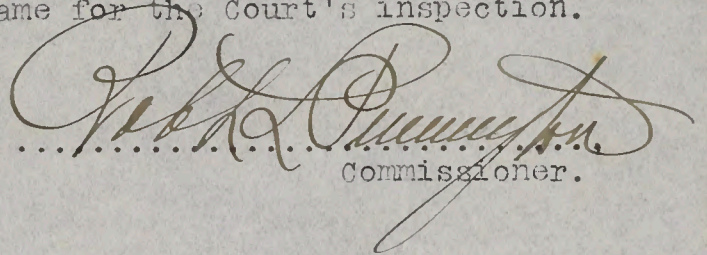 ame for the Court's inspection.
Robt L Pennington
Commissioner.